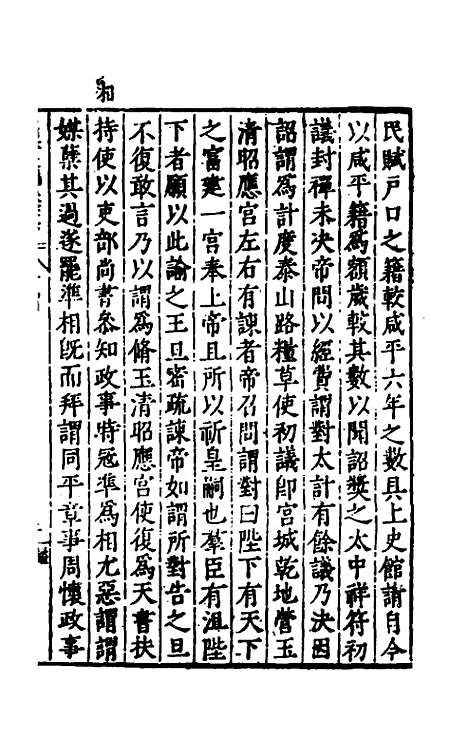 民賦戸口之籍較咸平六年之數具上史館請自今
以咸平籍爲額歲較其數以聞詔奬之太中祥符初
議封禪未決帝問以經費謂對太計有餘議乃決因
詔謂爲計度泰山路糧草使初議卽宮城乾地營玉
清昭應宮左右有諫者帝召問謂對曰陛下有天下
之富建一宮奉上帝且所以祈皇嗣也羣臣有沮陛
下者願以此諭之王旦密疏諫帝如謂所對告之旦
不復敢言乃以謂爲脩玉清昭應宮使復爲天書扶
持使以吏部尚書叅知政事特冠準爲相尤惡謂謂
媒櫱其過遂罷準相旣而拜謂同平章事周懷政事